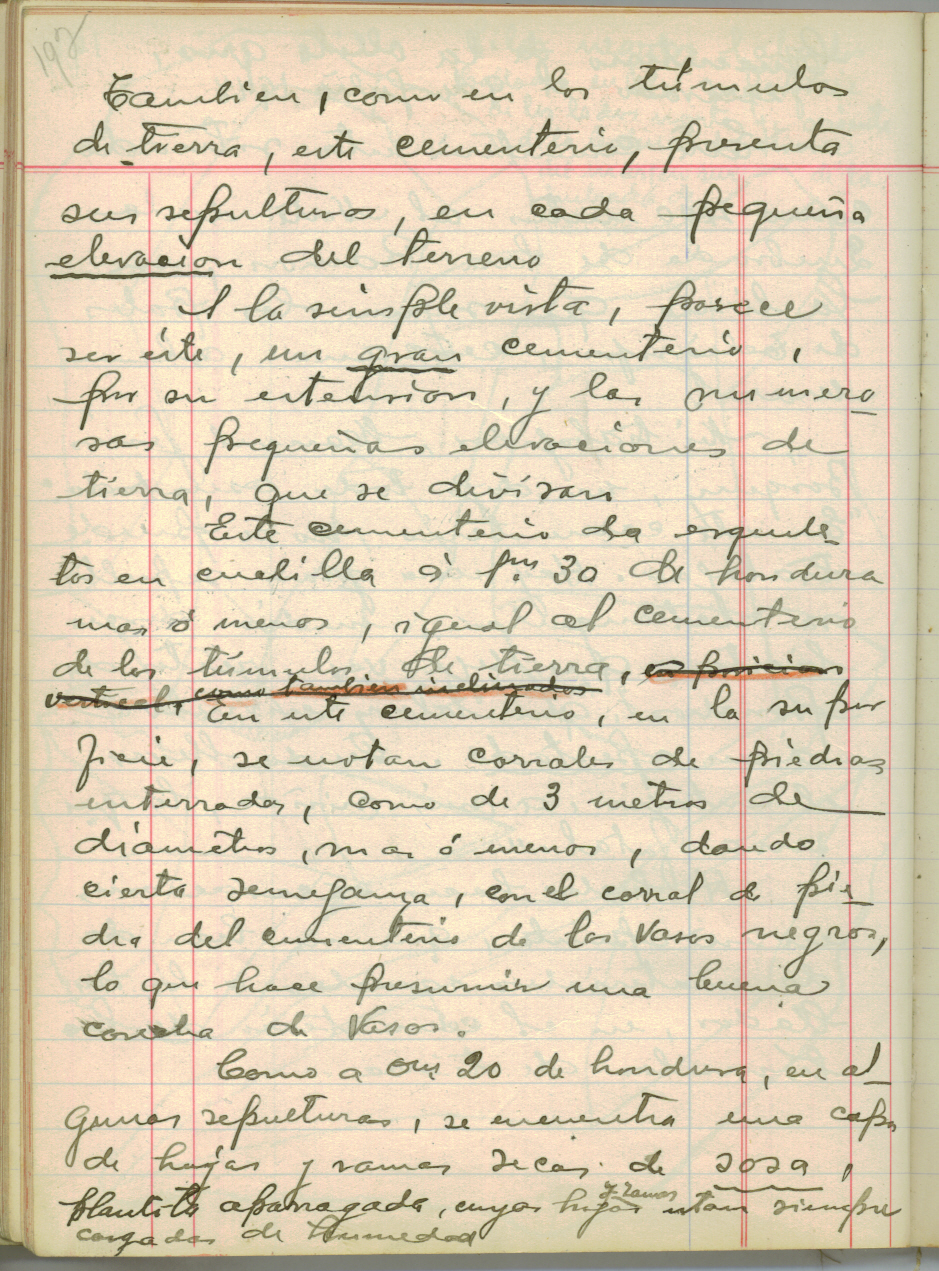 192
Tambien, como en los túmulos
de tierra, este cementerio, presenta
sus sepulturas, en cada pequeña
elevacion del terreno
A la simple vista, parece
ser éste, un gran cementerio,
por su estension, y las numero
sas pequeñas elevaciones de
tierra, que se divisan
Este cementerio da esquele-
tos en cuclilla á 1m 30 de hondura
mas ó menos, igual al cementerio
de los túmulos de tierra, en posicion
vertical, como tambien inclinados
En este cementerio, en la super
ficie, se notan corrales de piedras
enterradas, como de 3 metros de
diámetros, mas ó menos, dando
cierta semejanza, con el corral de pie-
dra del cementerio de los Vasos negros,
lo que hace presumir una buena
cosecha de Vasos.
Como a 0m 20 de hondura, en al-
gunas sepulturas, se encuentra una capa
de hojas y ramas secas de sosa,
y ramas
plantita aparragada, cuyas hojas estan siempre
cargadas de humedad